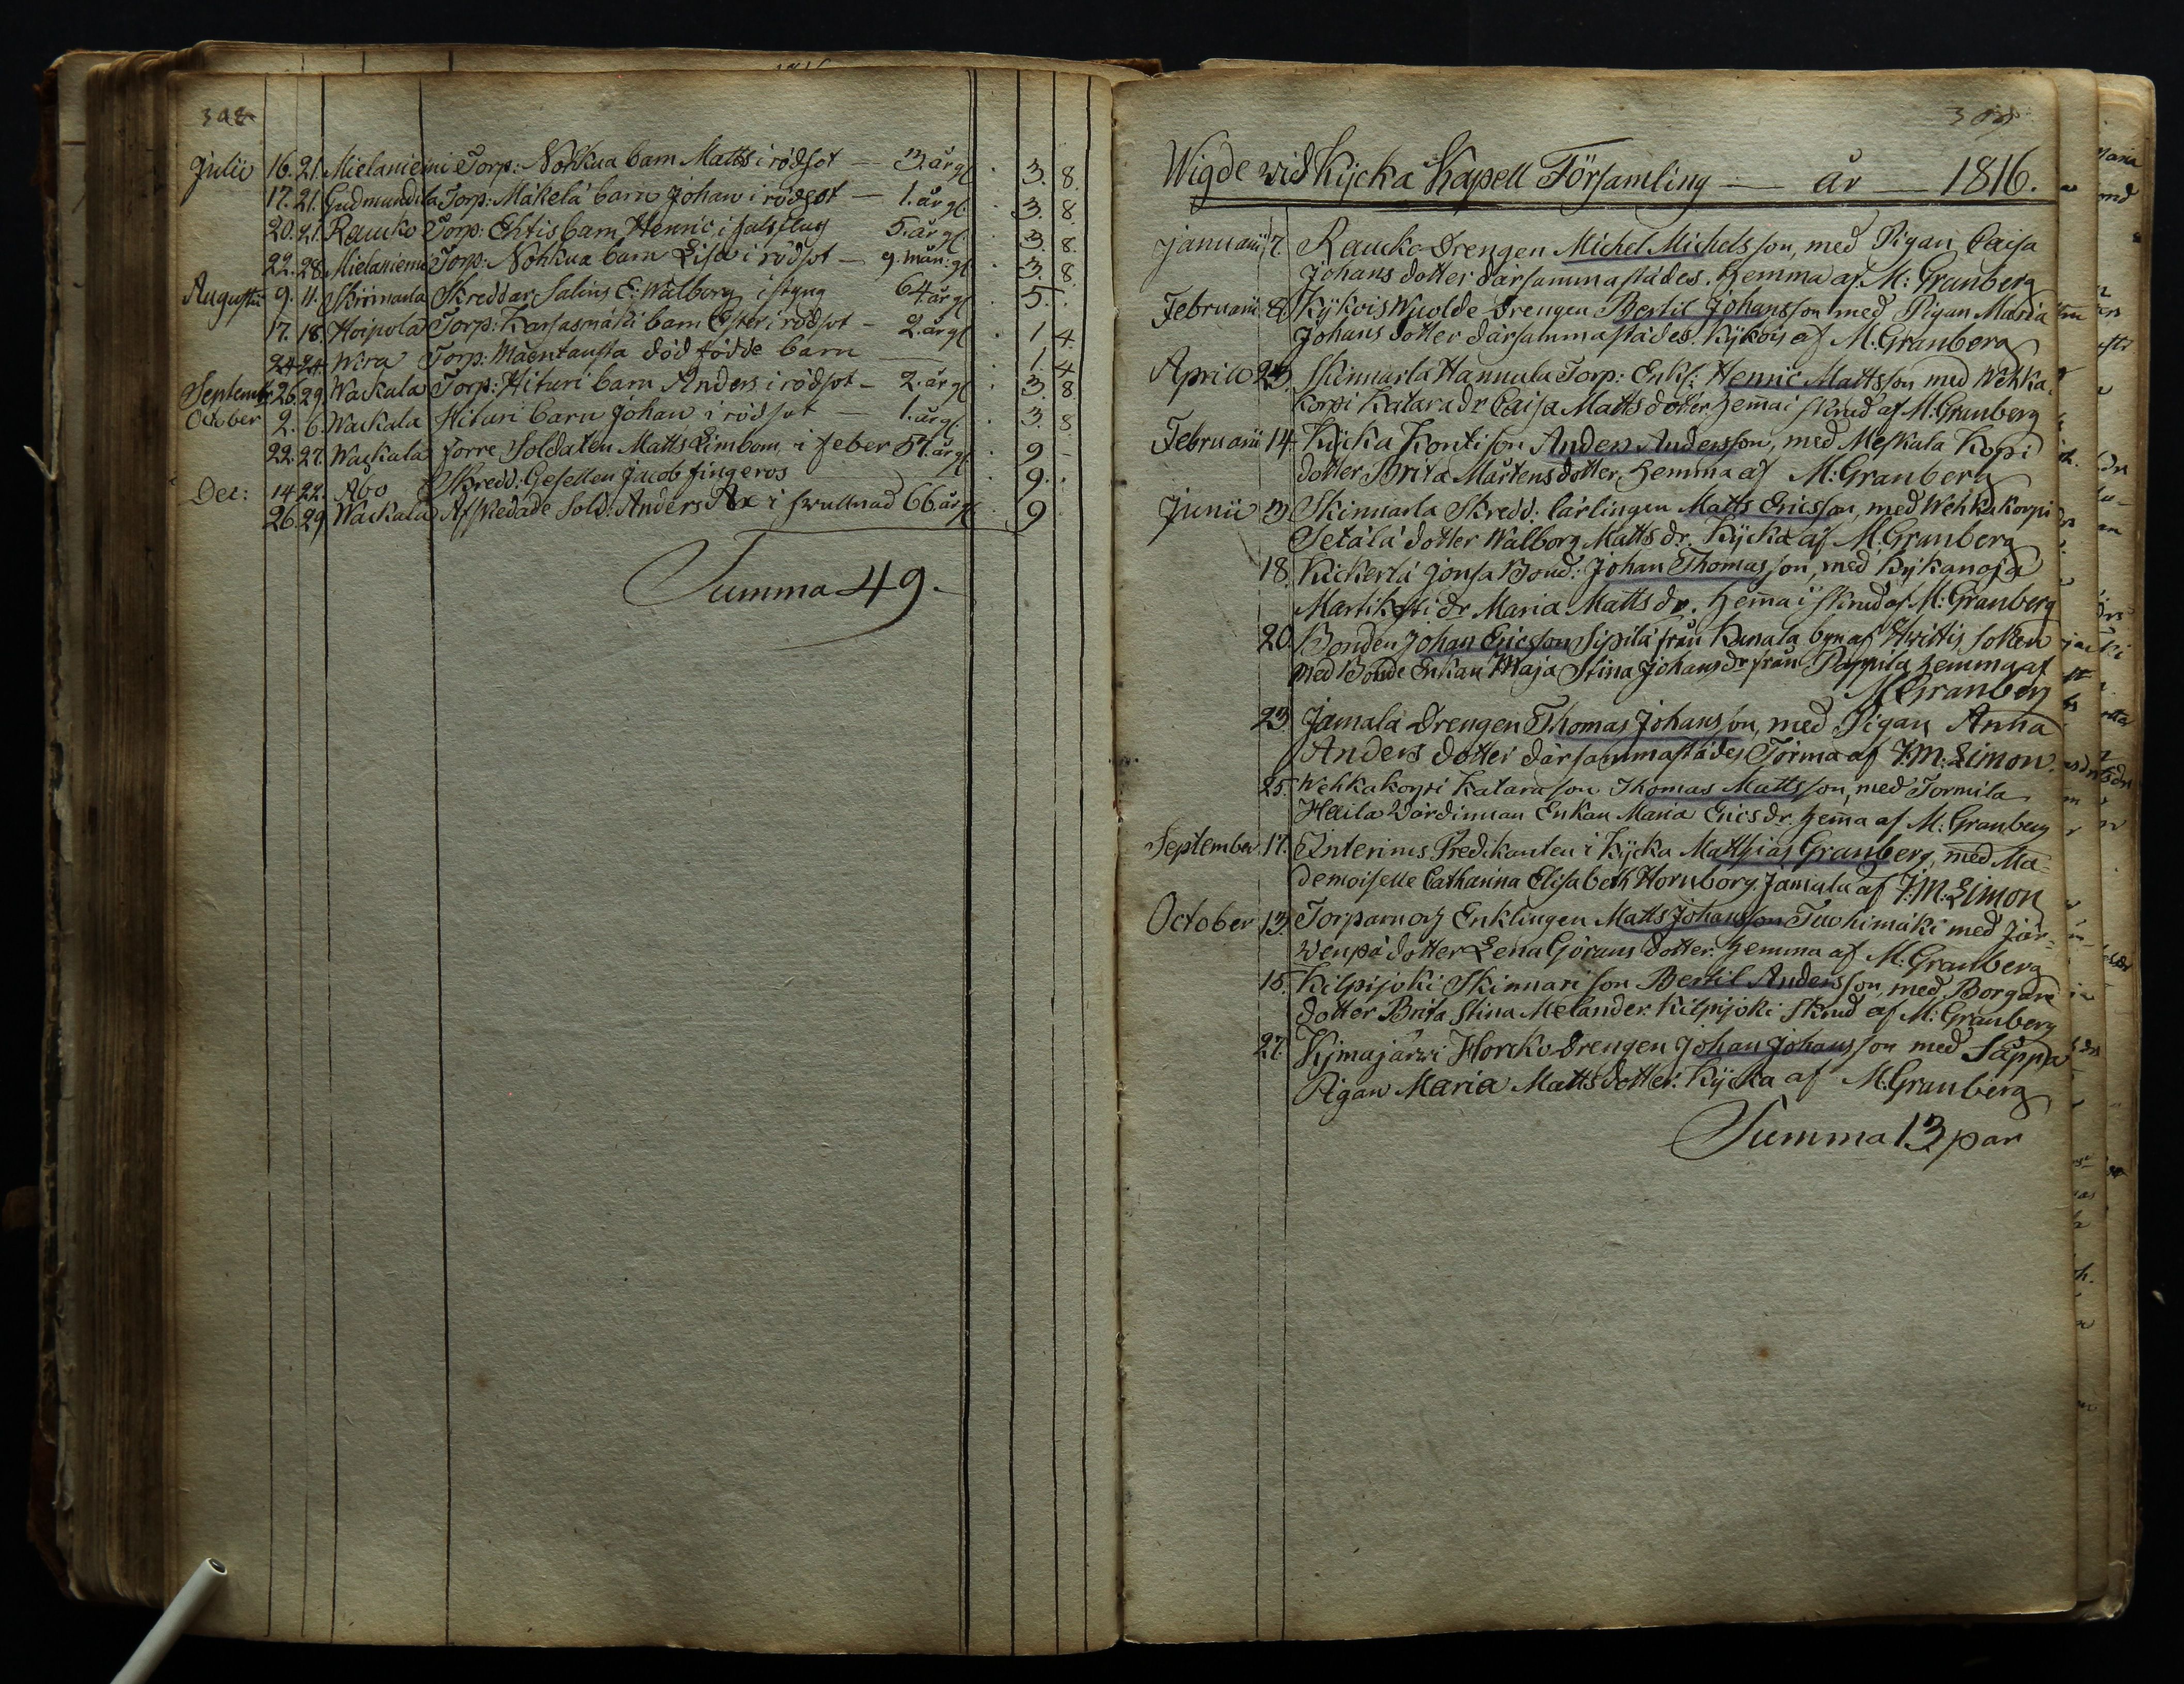 398
Julii 16. 21. Mielaniemi Torp: Nohkua barn Matts i rödsot — 3. år gl. 3. 8.
17. 21. Gudmundila Torp: Mäkelä barn Johan i rödsot — 1. år gl. 3. 8.
20. 21. Raucko Torp: Ehtis barn Henric i 5. år gl. 3. 8.
22. 28. Mielaniemi Torp: Nohkua barn Lisa i rödsot — 9. mån: gl. 3. 8.
Augusti 9. 11. Skinnarla Skreddar Salins E: Walborg i styng 64 år gl. 5.
17. 18. Hoipola Torp: barn Ester i rödsot — 2. år gl. 1 4.
24. 24. Wira Torp: Mäentausta död födde barn — 1. 4
Septembr 26. 29. Wackala Torp: Hituri barn Anders i rödsot — 2. år gl. 3. 8
October 2. 6. Wackala Hituri barn Johan i rödsot — 1. år gl. 3. 8.
22. 27. Wackala förre Soldaten Matts Limbom i feber 54. år gl. 9 -
Dec: 14 22. Åbo Skredd: Gesellen Jacob Fingeroos 9.
26. 29 Wackala Afskedade Sold: Anders Ax i swullnad 66. år gl. 9
Summa 49.
Wigde wid Kycka Kapell Församling — år — 1816.
Januarii 7. Raucko Drengen Michel Michelsson, med Pigan Caisa
Johans dotter därsammastädes. Hemma af M: Granberg
Februarii Kykois Wuolde Drengen Bertil Johansson med Pigan Maria
Johans dotter därsammastädes. Kykois af M. Granberg
Aprill 23. Skinnarla Hannula Torp: Enkl: Henric Mattsson med Wehka
korpi Katara dr Caisa Matts dotter hemma i skrud af M: Granberg
Februarii 14. Kycka Kontti son Anders Andersson, med Meskala Kopi
dotter Brita Mårtens dotter, Hemma af M: Granberg
Junii 3. Skinnarla Skredd: lärlingen Matts Ericsson, med Wehkakorpi
Setälä dotter Walborg Matts dr. Kycka af M. Granberg
18. Kickerlä Jonsa Bond: Johan Thomasson, med Kykanoja
Marti dr Maria Matts dr. hemma i skrud af M: Granberg
20. Bonden Johan Ericsson Sipilä från byn af Hwittis Sokn
med Bonde Enkan Maja Stina Johans dr från Pappila hemma af
M Granberg
23. Jamala Drengen Thomas Johansson, med Pigan Anna
Anders dotter därsammastädes Torma af J: M: Limon.
25. Wehkakorpi Katara son Thomas Mattsson, med Tormila
Heila Wärdinnan Enkan Maria Erics dr. hemma af M: Granberg
September 17. Interims Predikanten i Kycka Mathias Granberg, med Ma=
demoiselle Catharina Elisabeth Hornborg. Jamala af J: M: Limon
October 13. Torparn och Enklingen Matts Johansson Tuohimäki med Jär=
wenpä dotter Lena Görans dotter. hemma af M: Granberg
15. Kilpijoki Skinnari son Bertil Andersson, med Borgare
dotter Brita Stina Melander. Kilpijoki Skrud af M: Granberg
27. Kjmajärwi Horcko Drengen Johan Johansson med Säppä
Pigan Maria Matts dotter. Kycka af M: Granberg
Summa 13 par